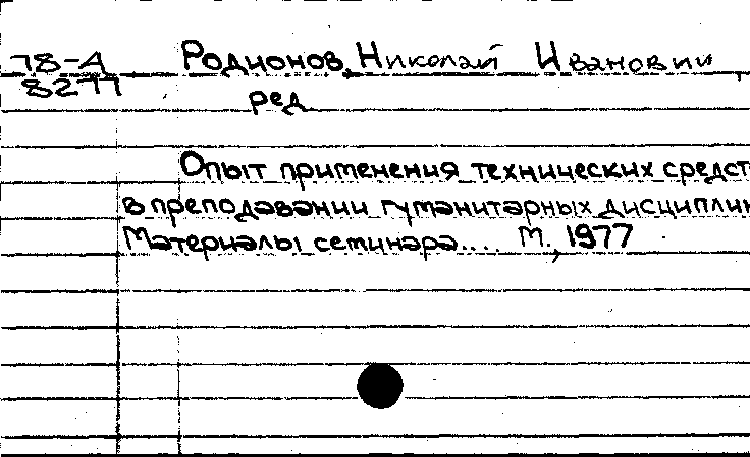 78-А Родионов, Николай Иванович,
8277 ред
Опыт применения технических средст
в преподавании гуманитарных дисциплин
Материалы семинара.... М., 1977